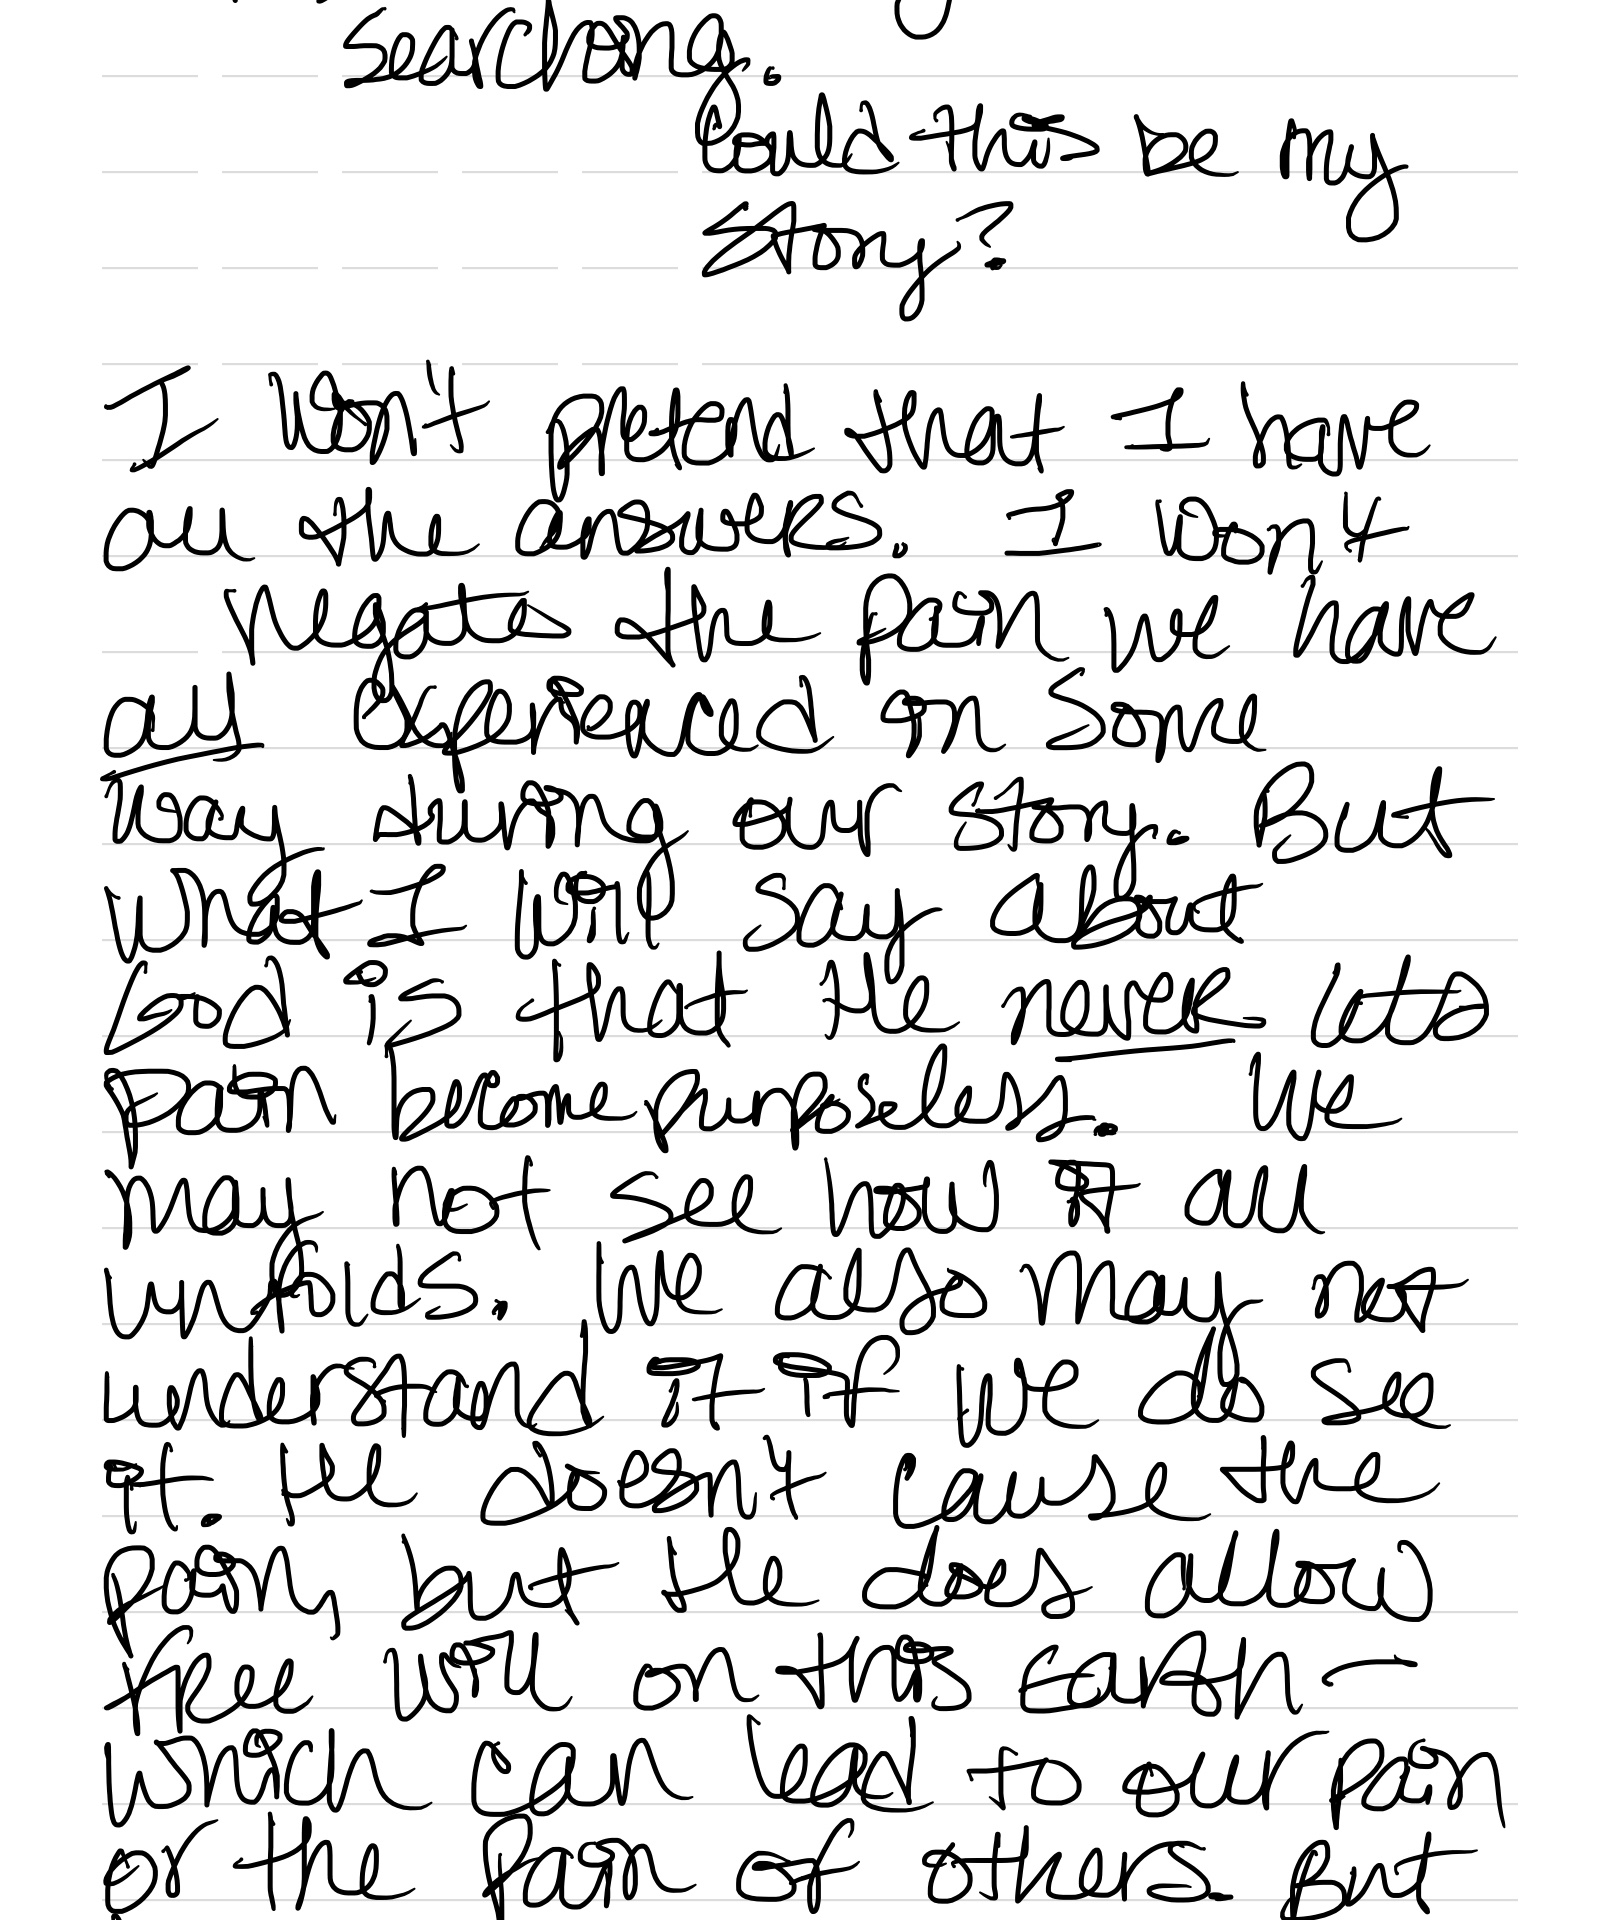 searching.
Could this be my
story?
I won't pretend that I have
all the answers. I won't
negate the pain we have
all experienced in some
way during our story. But
what I will say about
God is that He never lets
pain become purposeless. We
may not see how it all
unfolds. We also may not
understand it if we do see
it. He doesn't cause the
pain, but He does allow
free will on this Earth -
which can lead to our pain
or the pain of others. But